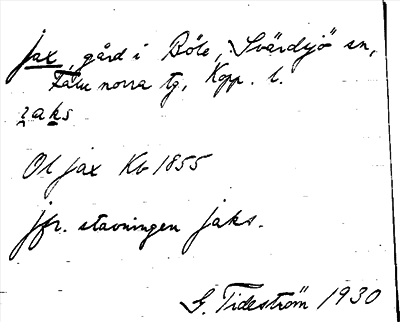 jax, gård i Böle, Svärdsjö sn,
Falu norra tg, Kopp. l.
jaks
Ol jax Kb 1855
jfr. stavningen jaks.
G. Tideström 1930